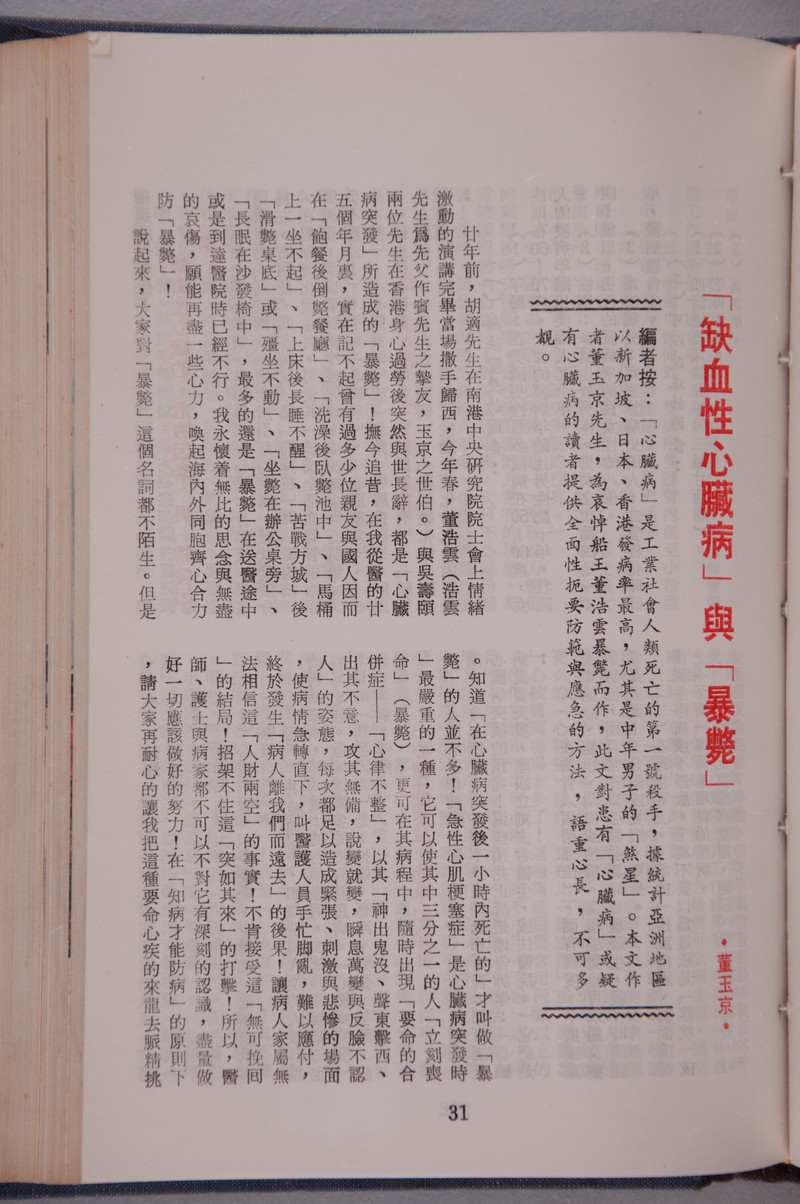 「缺血性心臟病」與「暴斃」
•董玉京•
編者按：「心臟病」是工業社會人類死亡的第一號殺手，據統計亞洲地區
以新加坡、日本、香港發病率最高，尤其是中年男子的「煞星」。本文作
者董玉京先生，為哀悼船王董浩雲暴斃而作，此文對患有「心臟病」或疑
有心臟病的讀者提供全面性扼要防範與應急的方法，語重心長，不可多
覯。
廿年前，胡適先生在南港中央硏究院院士會上情緒
激動的演講完畢當場撒手歸西，今年春，董浩雲（浩雲
先生爲先父作賓先生之摯友，玉京之世伯。）與吳壽頤
兩位先生在香港身心過勞後突然與世長辭，都是「心臟
病突發」所造成的「暴斃」！撫今追昔，在我從醫的廿
五個年月裏，實在記不起曾有過多少位親友與國人因而
在「飽餐後倒斃餐廳」、「洗澡後臥斃池中」、「馬桶
上一坐不起」、「上床後長睡不醒」、「苦戰方城」後
「滑斃桌底」或「殭坐不動」、「坐斃在辦公桌旁」、
「長眠在沙發椅中」，最多的還是「暴斃」在送醫途中
或是到達醫院時已經不行。我永懷着無比的思念與無盡
的哀傷，願能再盡一些心力，喚起海內外同胞齊心合力
防「暴斃」！
說起來，大家對「暴斃」這個名詞都不陌生。但是
。知道「在心臟病突發後一小時內死亡的」才叫做「暴
斃」的人並不多！「急性心肌梗塞症」是心臟病突發時
」最嚴重的一種，它可以使其中三分之一的人「立刻喪
命」（暴斃），更可在其病程中，隨時出現「要命的合
併症——「心律不整」，以其「神出鬼沒、聲東擊西、
出其不意，攻其無備，說變就變，瞬息萬變與反臉不認
人」的姿態，每次都足以造成緊張、刺激與悲慘的場面
，使病情急轉直下，叫醫護人員手忙脚亂，難以應付，
終於發生「病人離我們而遠去」的後果！讓病人家屬無
法相信這「人財兩空」的事實！不肯接受這「無可挽回
」的結局！招架不住這「突如其來」的打擊！所以，醫
師、護士與病家都不可以不對它有深刻的認識，盡量做
好一切應該做好的努力！在「知病才能防病」的原則下
，請大家再耐心的讓我把這種要命心疾的來龍去脈精挑
31